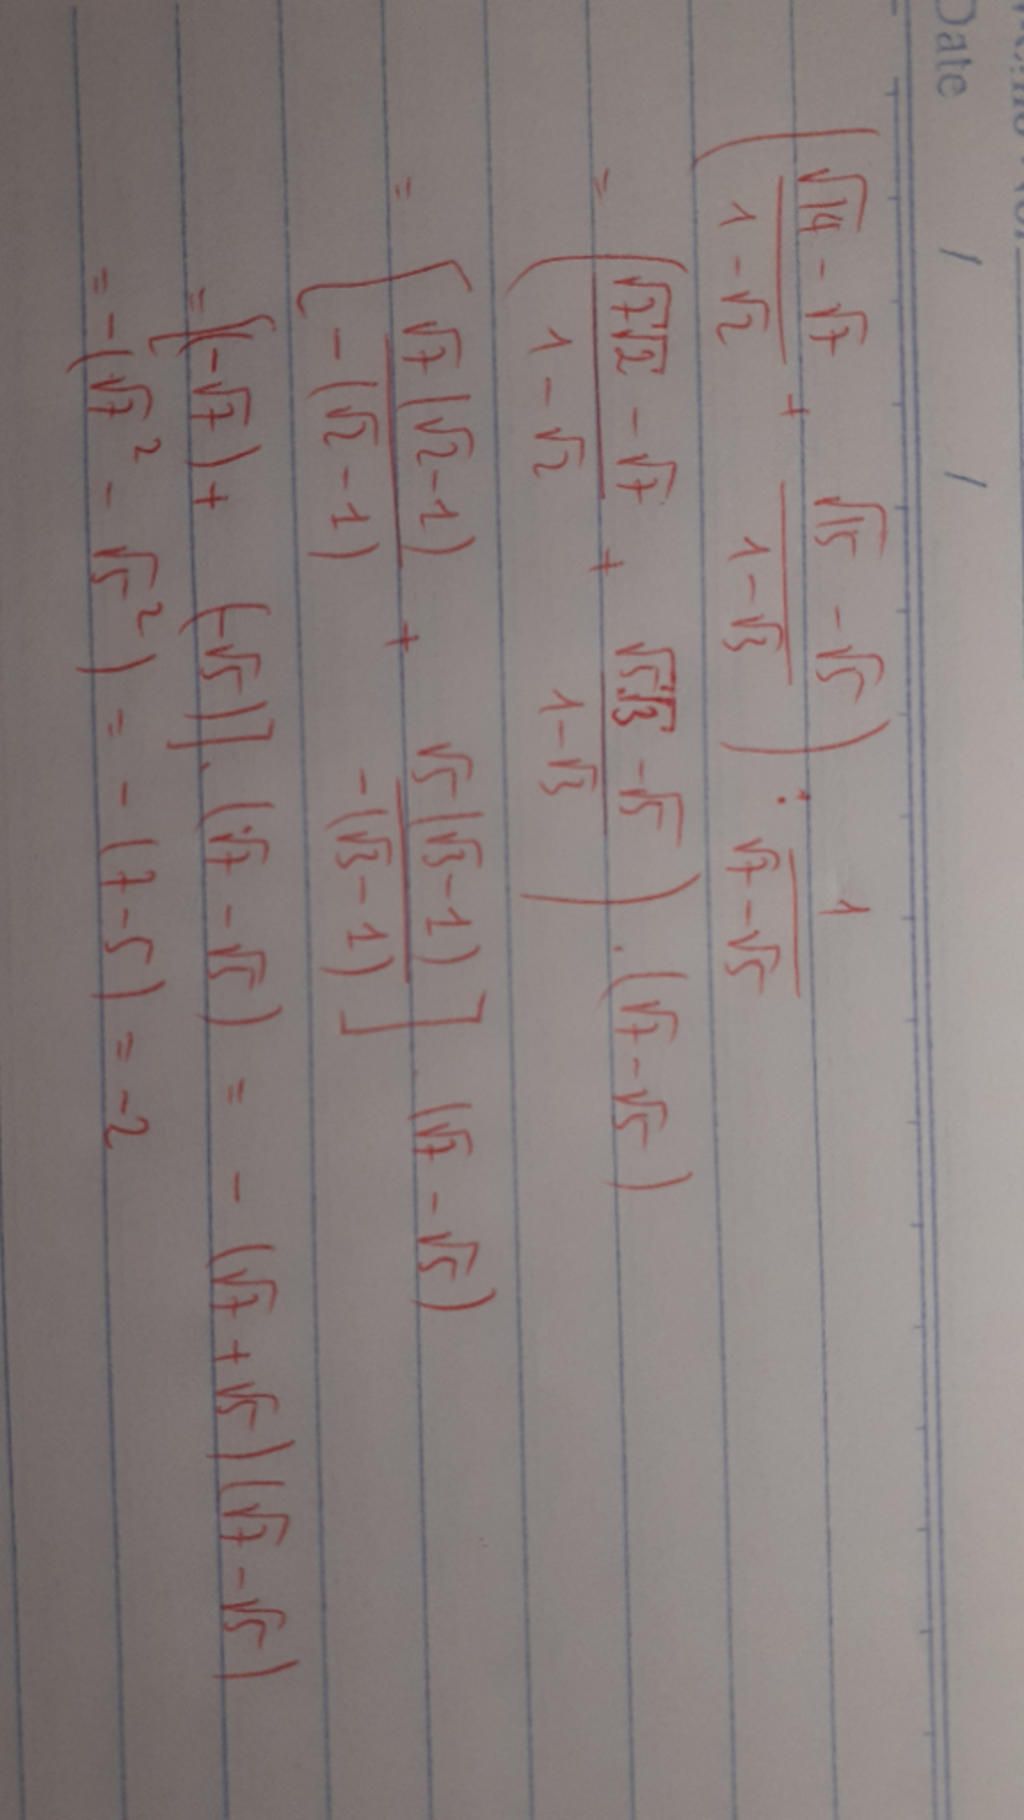 Date / /
(√14 - √7 / 1 - √2 + √15 - √5 / 1 - √3) : 1 / √7 - √5
= (√7√2 - √7 / 1 - √2 + √5√3 - √5 / 1 - √3) . (√7 - √5)
= [√7(√2 - 1) / -(√2 - 1) + √5(√3 - 1) / -(√3 - 1)] . (√7 - √5)
= [(-√7) + (-√5)] . (√7 - √5) = - (√7 + √5)(√7 - √5)
= -(√7² - √5²) = - (7 - 5) = -2